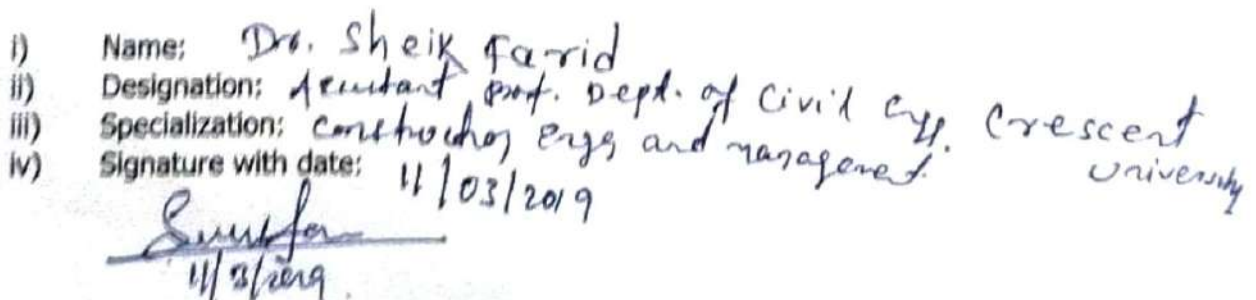 i) Name: Dr. Sheik Farid
ii) Designation: Assistant Prof. Dept. of Civil Engg. Crescent University
iii) Specialization: Construction Engg and management.
iv) Signature with date: 11/03/2019
11/3/2019